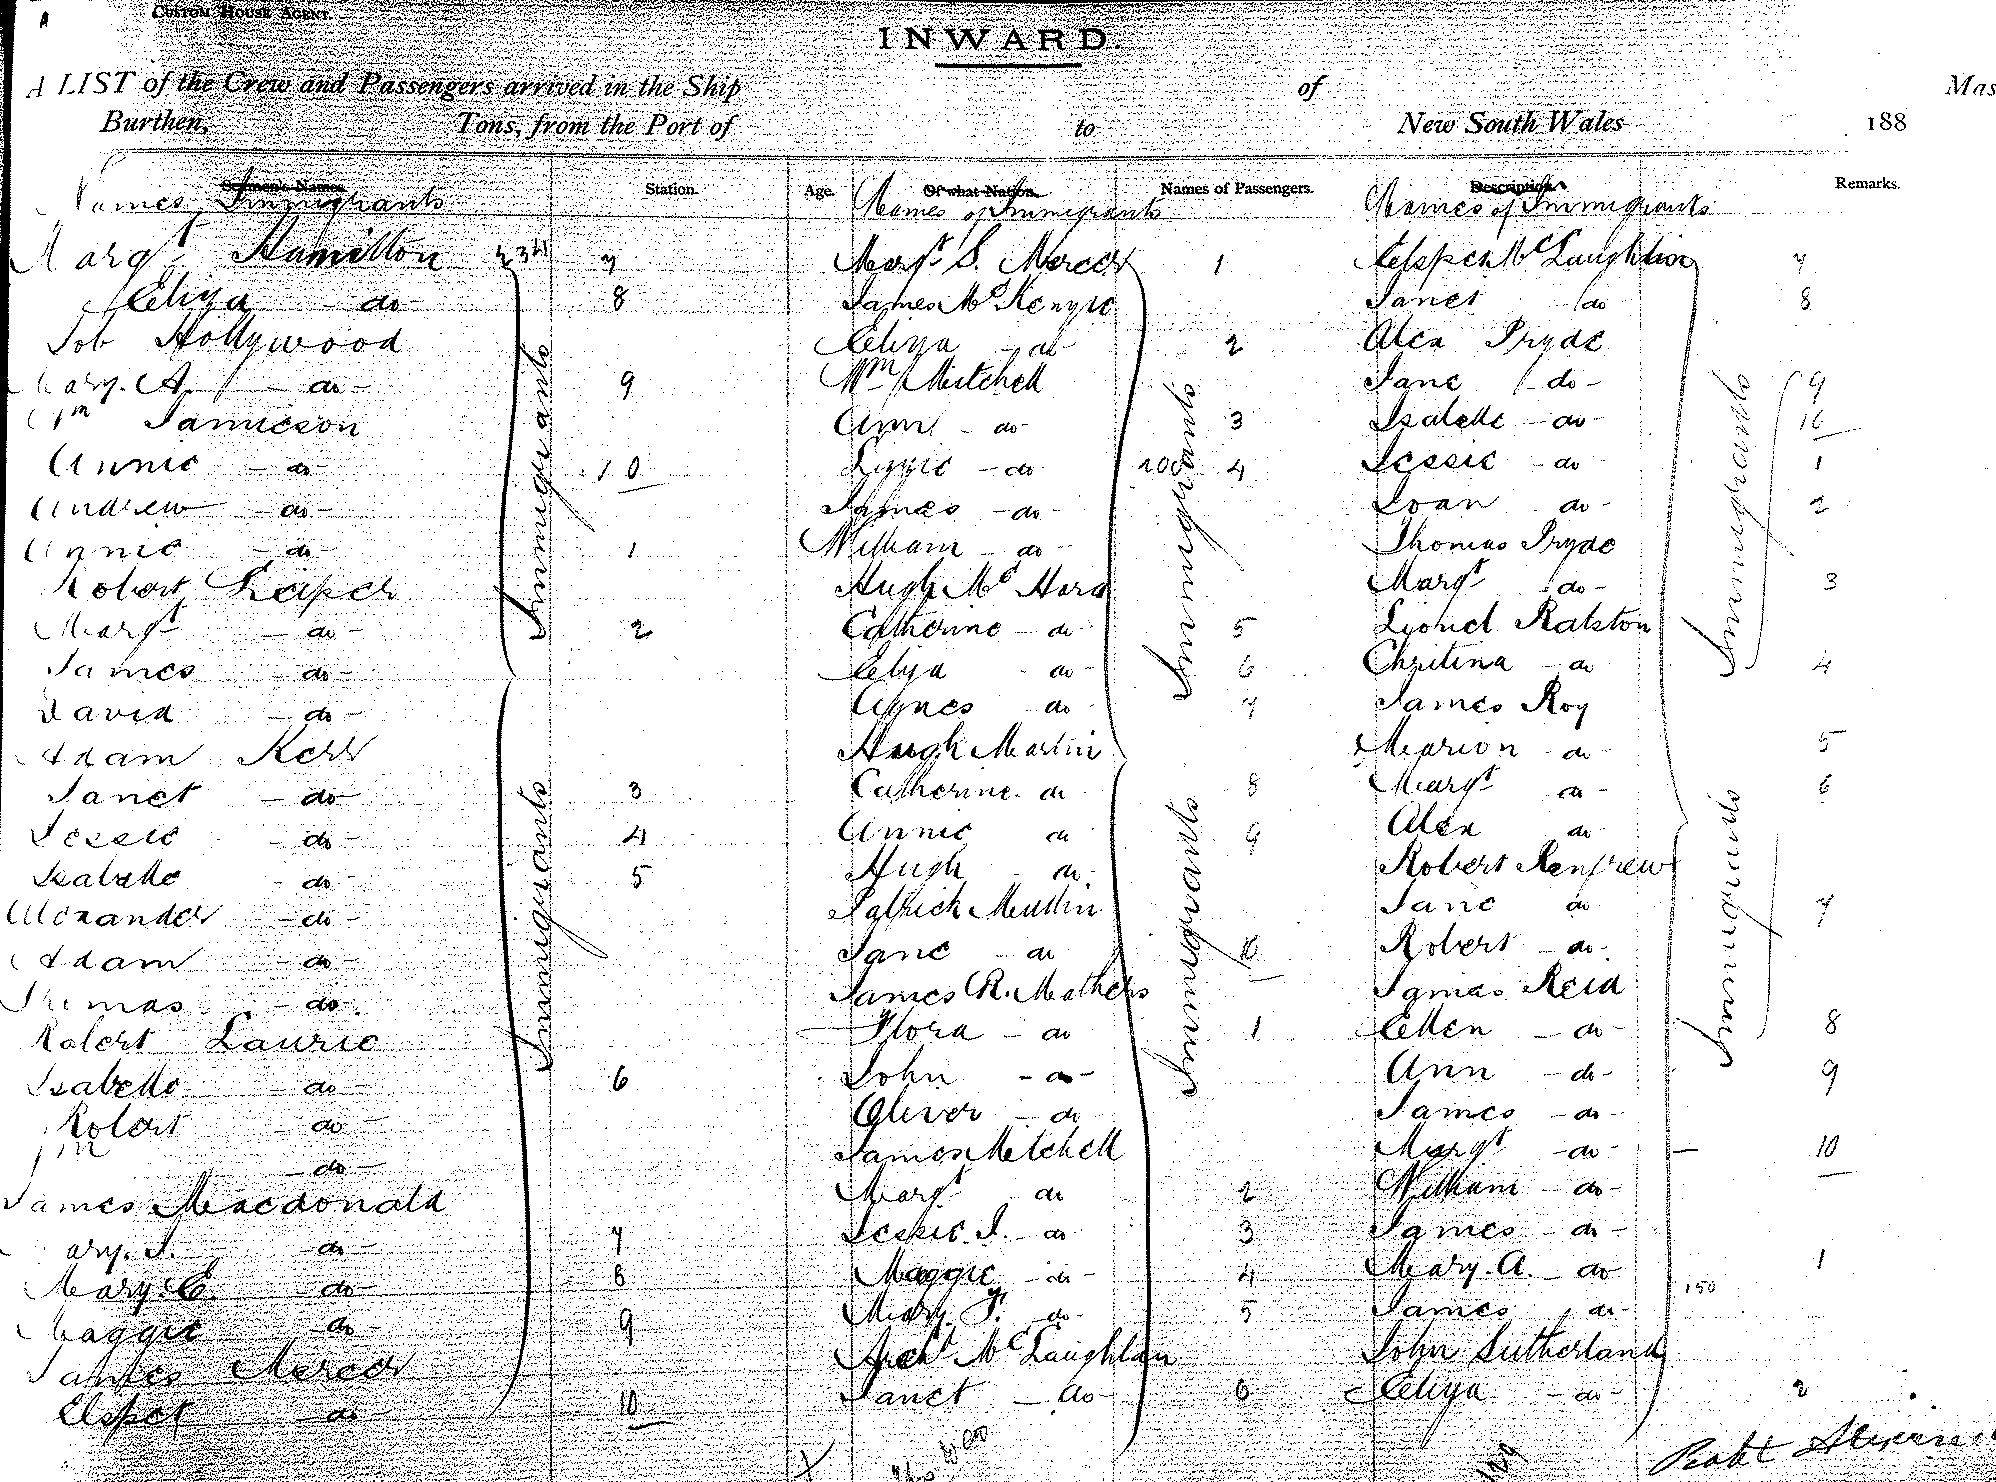 CUSTOM HOUSE AGENT.
INWARD.
A LIST of the Crew and Passengers arrived in the Ship of Mas
Burthen, Tons, from the Port of to New South Wales 188
Seamen's Names. Station. Age. Of what Nation. Names of Passengers. Description. Remarks.
Names Immigrants Names of Immigrants Names of Immigrants
Margt Hamilton 7
Eliza do 8
Job Hollywood
Mary. A. do 9
Wm Jamieson
Annie do 10
Andrew do
Annie do 1
Robert Leaper
Margt do 2
James do
David do
Adam Kerr
Janet do 3
Jessie do 4
Isabella do 5
Alexander do
Adam do
Thomas do
Robert Laurie
Isabella do 6
Robert do
Wm do
James Macdonald
Mary. J. do 7
Mary. E. do 8
Maggie do 9
James Mercer
Elspet do 10
Immigrants
Immigrants
Margt S. Mercer 1
James McKenzie
Eliza do 2
Wm Mitchell
Ann do 3
Lizzie do 100 4
James do
William do
Hugh McHard
Catherine do 5
Eliza do 6
Agnes do 7
Hugh Martin
Catherine do 8
Annie do 9
Hugh do
Patrick Mullin
Jane do 10
James R. Mathers
Flora do 1
John do
Oliver do
James Mitchell
Margt do 2
Jessie. J. do 3
Maggie do 4
Mary. F. do 5
Archd McLaughlan
Janet do 6
Immigrants
Immigrants
Elspet McLaughlan 7
Janet do 8
Alex Pryde
Jane do 9
Isabella do 10
Jessie do 1
Joan do 2
Thomas Pryde
Margt do 3
Lionel Ralston
Christina do 4
James Roy
Marion do 5
Margt do 6
Alex do
Robert Renfrew
Jane do 7
Robert do
James Reid
Ellen do 8
Ann do 9
James do
Margt do 10
William do
James do
Mary. A. do 1
James do 150
John Sutherland
Eliza do 2
Immigrants
Immigrants
Robt